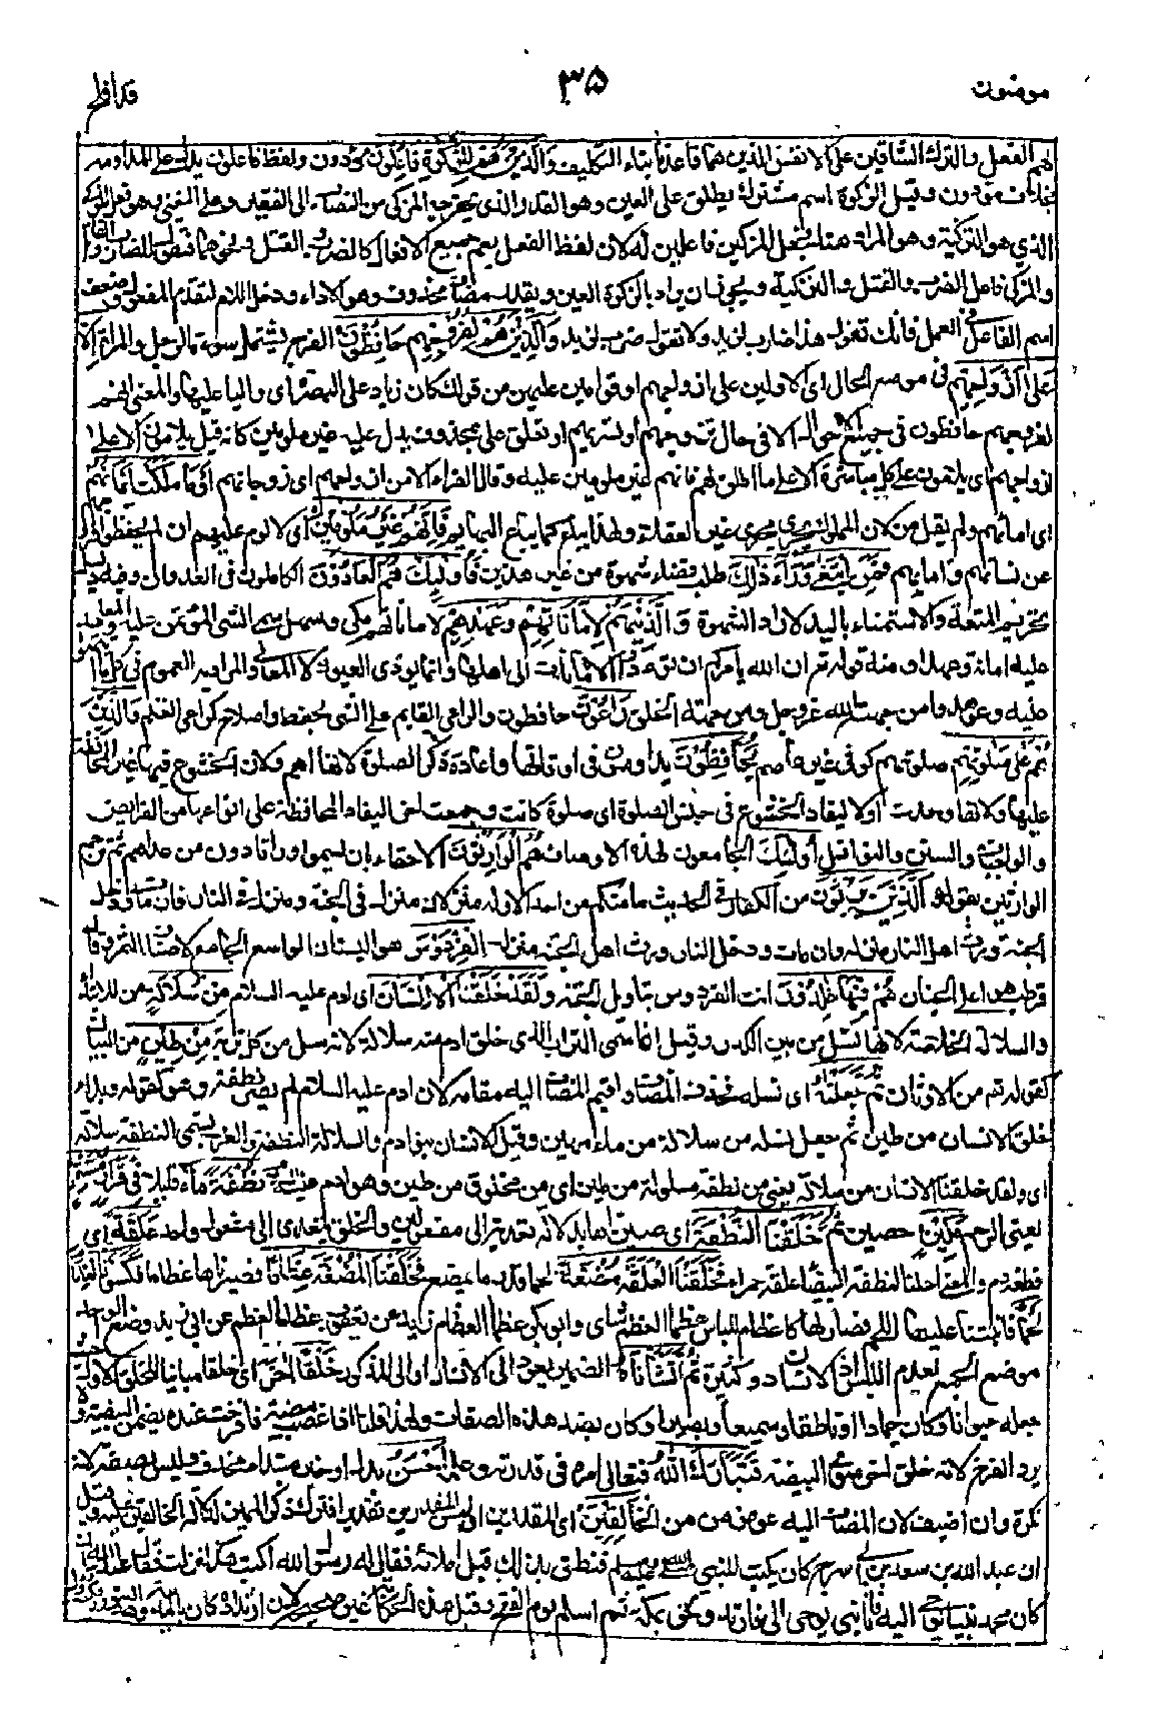 قد افلح
۳۵
مومنون
لهم الفعل والترك الشاقين على الانفس الذين هما قاعدة ابتناء التكليف وَالَّذِينَ هُمْ لِلزَّكٰوةِ فَاعِلُونَ مؤدون ولفظ فاعلون يدل على المداومة
بخلاف مؤدون وقيل الزكوة اسم مشترك يطلق على العين وهو القدر الذي يخرجه المزكي من النصاب الى الفقير وعلى المعنى وهو فعل المزكي
الذي هو التزكية وهو المراد هنا فجعل المزكين فاعلين له لان لفظ الفعل يعم جميع الافعال كالضرب والقتل ونحوهما
والمزكي فاعل الضرب والقتل والتزكية ويجوز ان يراد بالزكوة العين ويقدر مضاف محذوف وهو الاداء ودخل اللام لتقدم المفعول وضعف
اسم الفاعل في العمل فانك تقول هذا ضارب لزيد ولا تقول ضرب لزيد وَالَّذِينَ هُمْ لِفُرُوجِهِمْ حَافِظُونَ الفرج يشتمل سوءة الرجل والمراة إِلَّا
عَلَى أَزْوَاجِهِمْ في موضع الحال اى الا والين على ازواجهم او قوامين عليهن من قولك كان زياد على البصرة اى واليا عليها والمعنى انهم
لفروجهم حافظون في جميع الاحوال الا في حال تزوجهم او تسريهم او تعلق على بمحذوف يدل عليه غير ملومين كانه قيل يلامون الا على
ازواجهم اى يلامون على كل مباشرة الا على ما اطلق لهم فانهم غير ملومين عليه وقال الفراء الا من ازواجهم اى زوجاتهم أَوْ مَا مَلَكَتْ أَيْمَانُهُمْ
اى امائهم ولم يقل من لان المملوك جرى مجرى غير العقلاء ولهذا يباع كما يباع البهايم فَإِنَّهُمْ غَيْرُ مَلُومِينَ اى لا لوم عليهم ان لم يحفظوا فروجهم
عن نسائهم وامائهم فَمَنِ ابْتَغَى وَرَاءَ ذٰلِكَ طلب قضاء شهوة من غير هذين فَأُولٰئِكَ هُمُ الْعَادُونَ الكاملون في العدوان وفيه دليل
تحريم المتعة والاستمناء باليد لارادة الشهوة وَالَّذِينَ هُمْ لِأَمَانَاتِهِمْ وَعَهْدِهِمْ لامانتهم مكى وسهل سمى الشئ المؤتمن عليه والمعاهد
عليه امانة وعهدا ومنه قوله تعر ان الله يأمركم ان تؤدوا الامانات الى اهلها وانما يؤدى العيون لا المعانى والمراد به العموم في كل ما
عليه وعوهدوا من جهة الله عزوجل ومن جهة الخلق رَاعُونَ حافظون والراعى القايم على الشئ بحفظ واصلاح كراعى الغنم وَالَّذِينَ
هُمْ عَلَى صَلَوٰتِهِمْ صلوتهم كوفى غير عاصم يُحَافِظُونَ يداومون في اوقاتها واعادة ذكر الصلوة لانها اهم ولان الخشوع فيها غير المحافظة
عليها ولانها وحدت اولا ليفاد الخشوع في جنس الصلوة اى صلوة كانت وجمعت اخر ليفاد المحافظة على انواعها من الفرايض
والواجبات والسنن والنوافل أُولٰئِكَ الجامعون لهذه الاوصاف هُمُ الْوَارِثُونَ الاحقاء بان يسموا وراثا دون من عداهم ثم ترجم
الوارثين بقوله الَّذِينَ يَرِثُونَ من الكفار في الحديث ما منكم من احد الا وله منزلان منزل في الجنة ومنزل في النار فان مات ودخل
الجنة ورث اهل النار منزله وان مات ودخل النار ورث اهل الجنة منزله الْفِرْدَوْسَ هو البستان الواسع الجامع لاصناف الثمر وقال
قطرب هو اعلى الجنان هُمْ فِيهَا خٰلِدُونَ انث الفردوس بتاويل الجنة وَلَقَدْ خَلَقْنَا الْإِنْسَانَ اى ادم عليه السلام مِنْ سُلَالَةٍ من للابتداء
والسلالة الخلاصة لانها تسل من بين الكدر وقيل انما سمى التراب الذى خلق ادم منه سلالة لانه سل من كل تربة مِنْ طِينٍ من للبيان
كقوله تعر من الاوثان ثُمَّ جَعَلْنَاهُ اى نسله فحذف المضاف واقيم المضاف اليه مقامه لان ادم عليه السلام لم يصر نطفة وهو كقوله وبدا
خلق الانسان من طين ثم جعل نسله من سلالة من ماء مهين وقيل الانسان بنو ادم والسلالة النطفة والعرب تسمى النطفة سلالة
اى ولقد خلقنا الانسان من سلالة يعنى من نطفة مسلولة من طين اى من مخلوق من طين وهو ادم عليه السلام نُطْفَةً ماء قليلا فِي قَرَارٍ
يعنى الرحم مَكِينٍ حصين ثُمَّ خَلَقْنَا النُّطْفَةَ اى صيرناها بدلالة تعديه الى مفعولين والخلق يتعدى الى مفعول واحد عَلَقَةً اى
قطعة دم والمعنى احلنا النطفة البيضاء علقة حمراء فَخَلَقْنَا الْعَلَقَةَ مُضْغَةً لحما قدر ما يمضغ فَخَلَقْنَا الْمُضْغَةَ عِظَامًا فصيرناها عظاما فَكَسَوْنَا الْعِظَامَ
لَحْمًا فانبتنا عليها اللحم فصار لها كاللباس عظما العظم شامى وابوبكر عظما العظام زيد عن يعقوب عظاما العظم عن ابى زيد وضع الواحد
موضع الجمع لعدم اللبس اذ الانسان ذو عظام كثيرة ثُمَّ أَنْشَأْنَاهُ الضمير يعود الى الانسان او الى المذكور خَلْقًا آخَرَ اى خلقا مباينا للخلق الاول
جعله حيوانا وكان جمادا وناطقا وسميعا وبصيرا وكان بضد هذه الصفات ولهذا قلنا اذا غصب بيضة فافرخت عنده يضمن البيضة ولا
يرد الفرخ لانه خلق اخر سوى البيضة فَتَبَارَكَ اللَّهُ فتعالى امره في قدرته وعلمه أَحْسَنُ بدل او خبر مبتدا محذوف وليس بصفة لانه
نكرة وان اضيف لان المضاف اليه عوض من من الْخَالِقِينَ اى المقدرين اى احسن المقدرين تقديرا فترك ذكر المميز لدلالة الخالقين عليه وقيل
ان عبدالله بن سعد بن ابى سرح كان يكتب للنبى صلى الله عليه وسلم فنطق بذلك قبل املائه فقال له رسول الله اكتب هكذا نزلت فقال عبدالله ان
كان محمد نبيا يوحى اليه فانا نبى يوحى الى فارتد ولحق بمكة ثم اسلم يوم الفتح وقيل هذه الحكاية غير صحيحة لان ارتداده كان بالمدينة وهذه السورة مكية